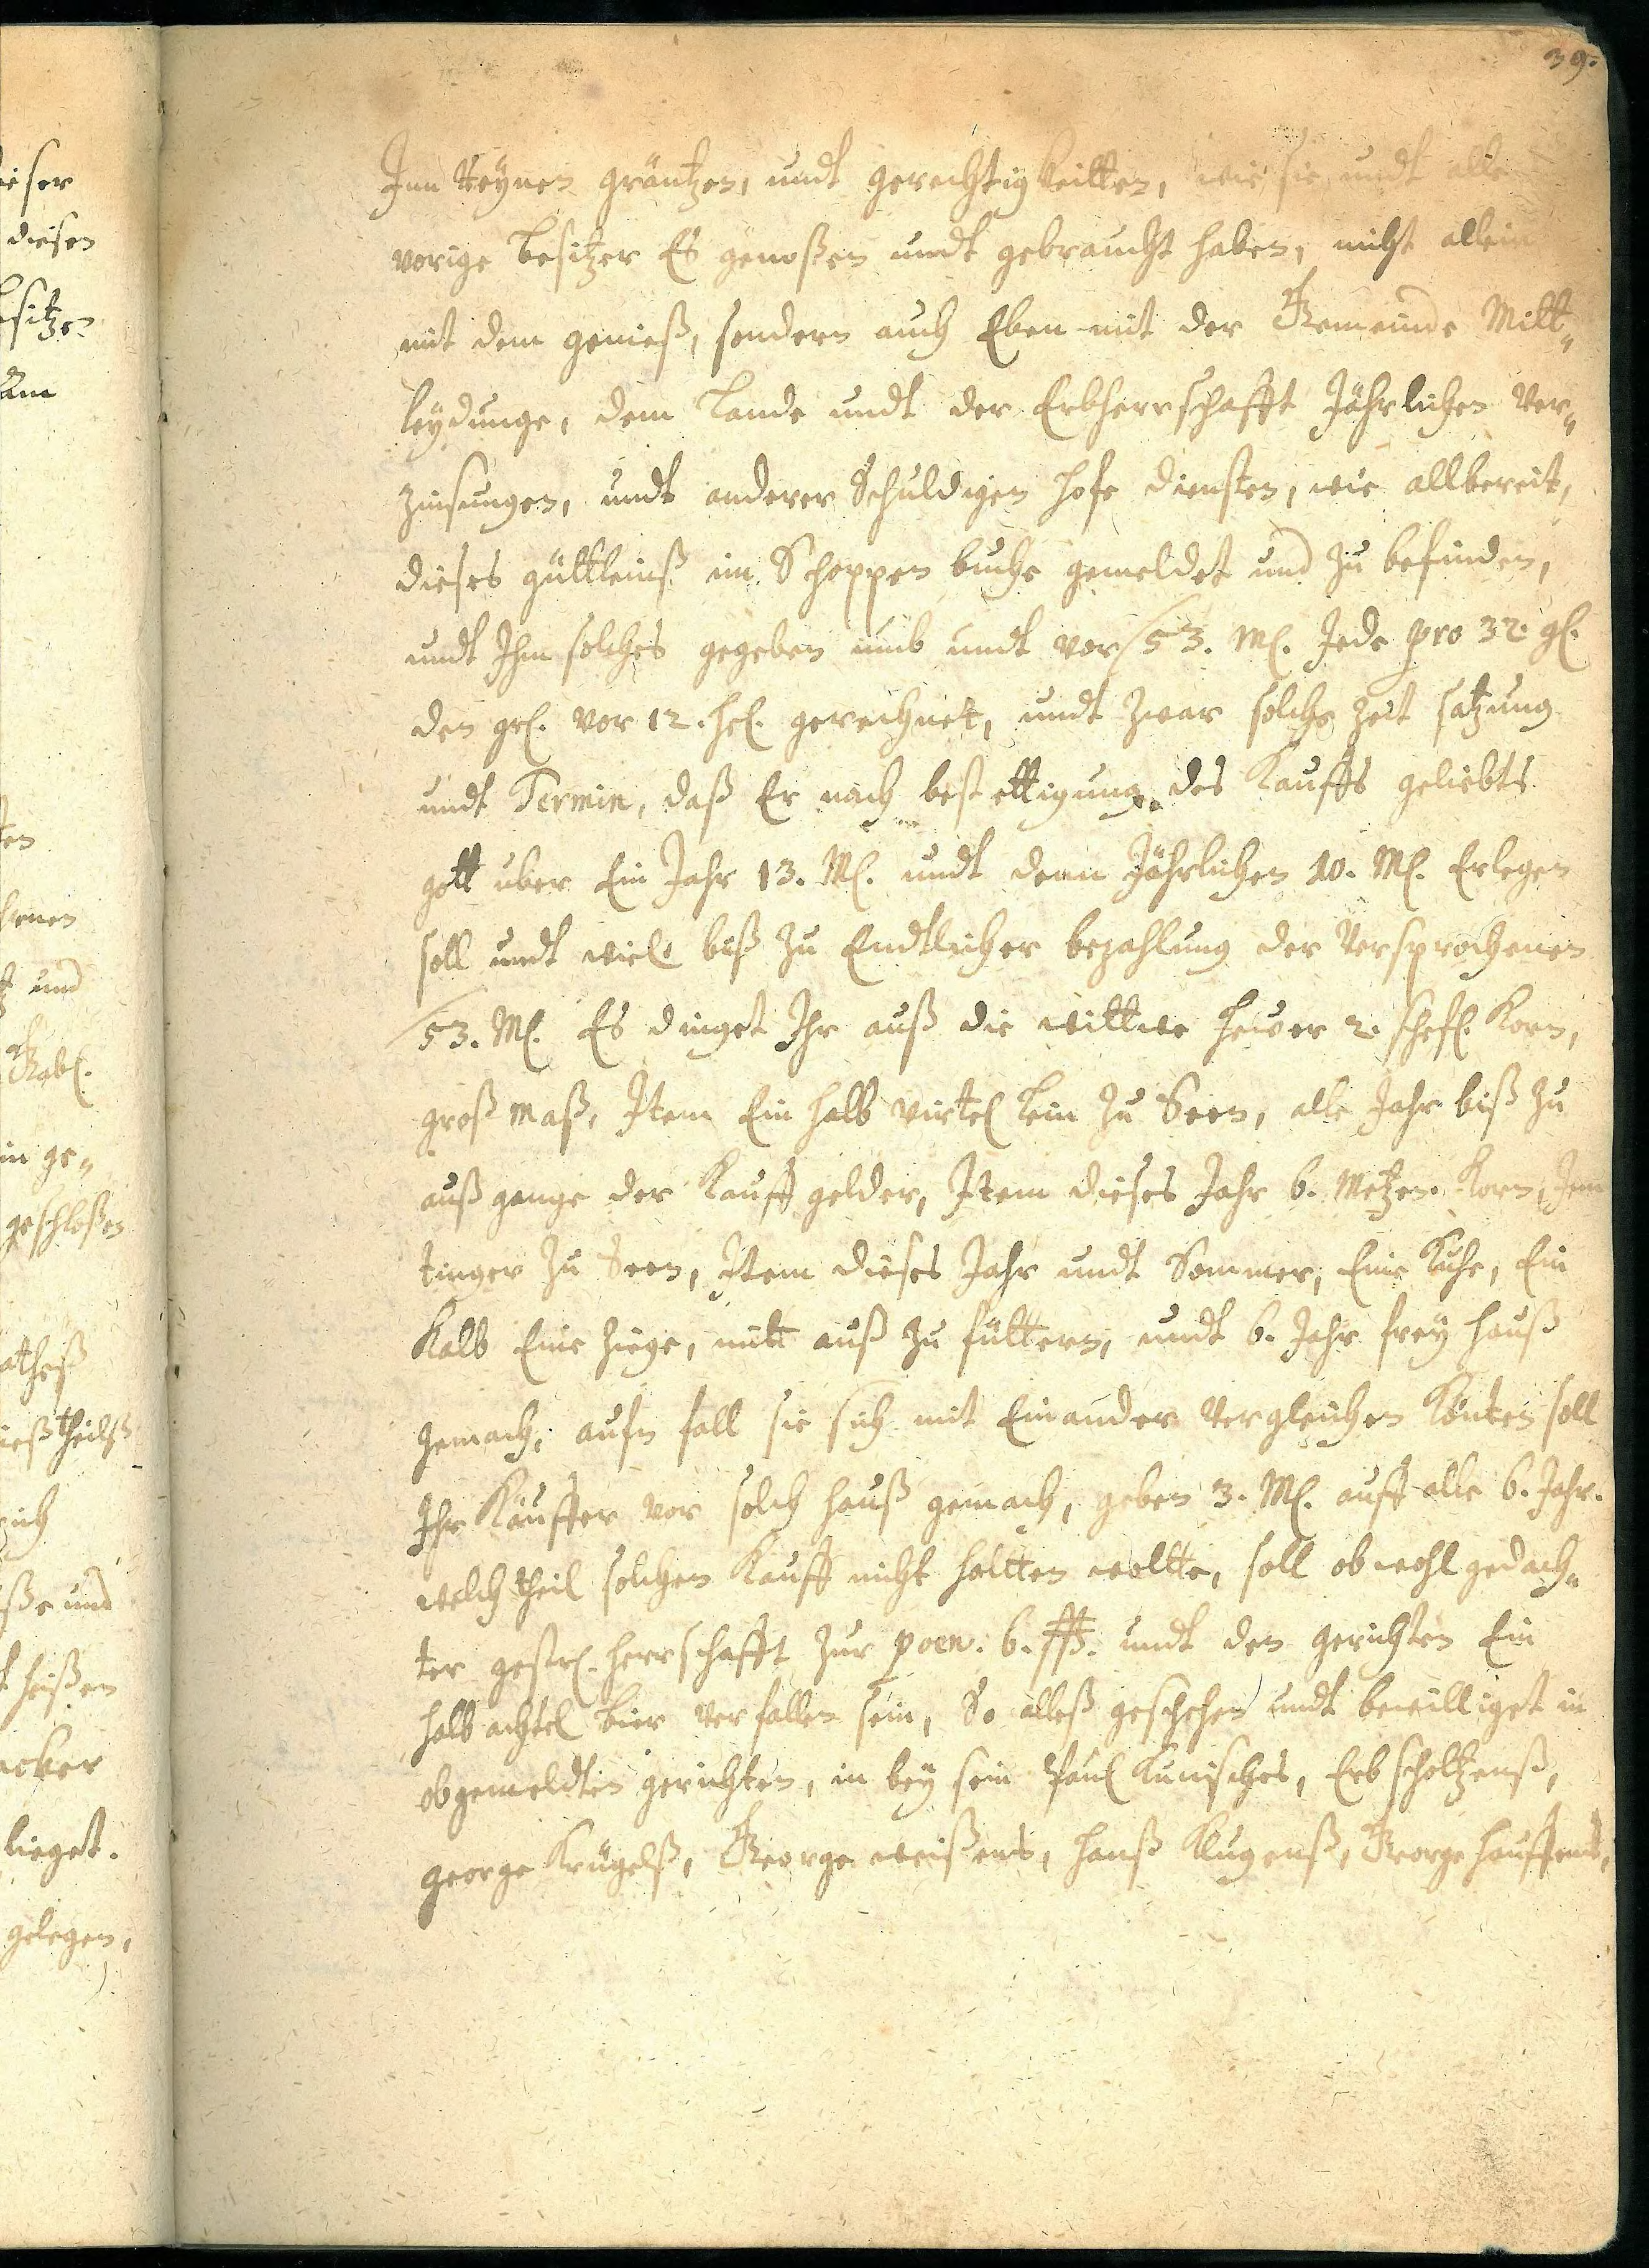 39.
Inn Reynen gräntzen, undt gerechtigkeitten, wie sie undt alle
vorige Besitzer Es genoßen undt gebraucht haben, nicht allein
mit dem genieß, sondern auch Eben mit der Gemeinde Mitt„
leydunge, dem Lande undt der Erbherrschafft Jährlichen Ver„
zinsungen, undt anderer Schuldigen hofe diensten, wie allbereit,
dieses güttleinß im Schoppen buche gemeldet und zu befinden,
undt Ihm solches gegeben umb undt vor 53. M. Jede pro 32. gl.
den gr. vor 12. hel. gerechnet, undt zwar solche zeit satzung
undt Termin, daß Er nach bestettigung des Kauffs geliebts
gott uber Ein Jahr 13. M. undt denn Jährlichen 10. M. Erlegen
soll undt wiel biß zu Endtlicher bezahlung der Versprochenen
53. M. Es dinget Ihr auß die wittwe hewer 2. schefl. Korn,
groß maß, Item Ein halb virtel Lein zu Seen, alle Jahr biß zu
auß gange der Kauff gelder, Item dieses Jahr 6. Metzen Korn, Inn
tinger zu Seen, Item dieses Jahr undt Sommer, Eine Kuhe, Ein
Kalb Eine Ziege, mitt auß zu füttern, undt 6. Jahr frey hauß
gemach, aufn fall sie sich mit Einander Vergleichen Könten soll
Ihr Käuffer vor solch hauß gemach, geben 3. M. auff alle 6. Jahr.
welch theil solchen Kauff nicht haltten woltte, soll obwohl gedach„
ter gestr. herrschafft zur poen. 6. undt den gerichten Ein
halb achtel bier Verfallen sein, So alleß geschehen undt bewilliget in
obgemeldten gerichten, in bey sein Paul Kunisches, Erb scholtzenß,
george Krügelß, George weißens, hanß Klugenß, George hauffens,